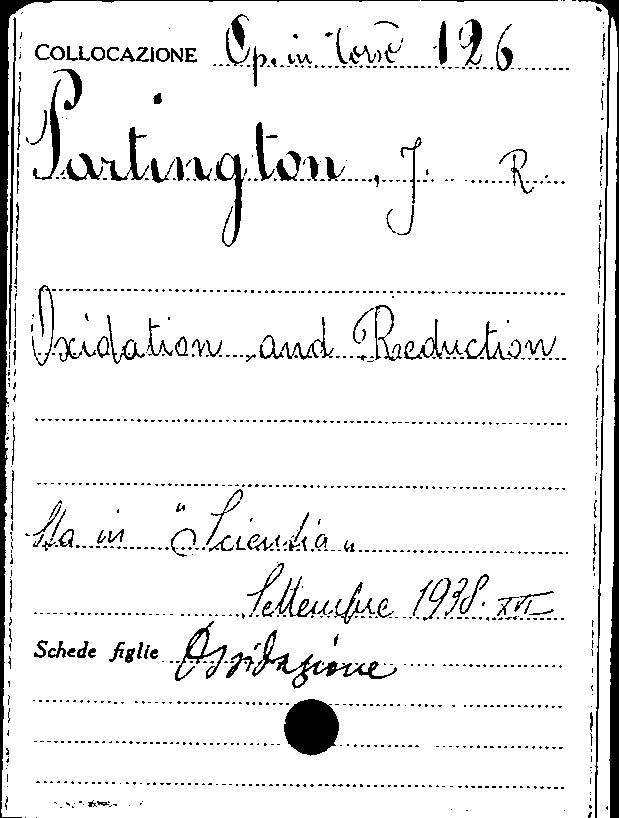 COLLOCAZIONE Op. in Corso 126
Partington, J. R.
Oxidation and Reduction
Sta in "Scientia"
Settembre 1938. XVI
Schede figlie Ossidazione